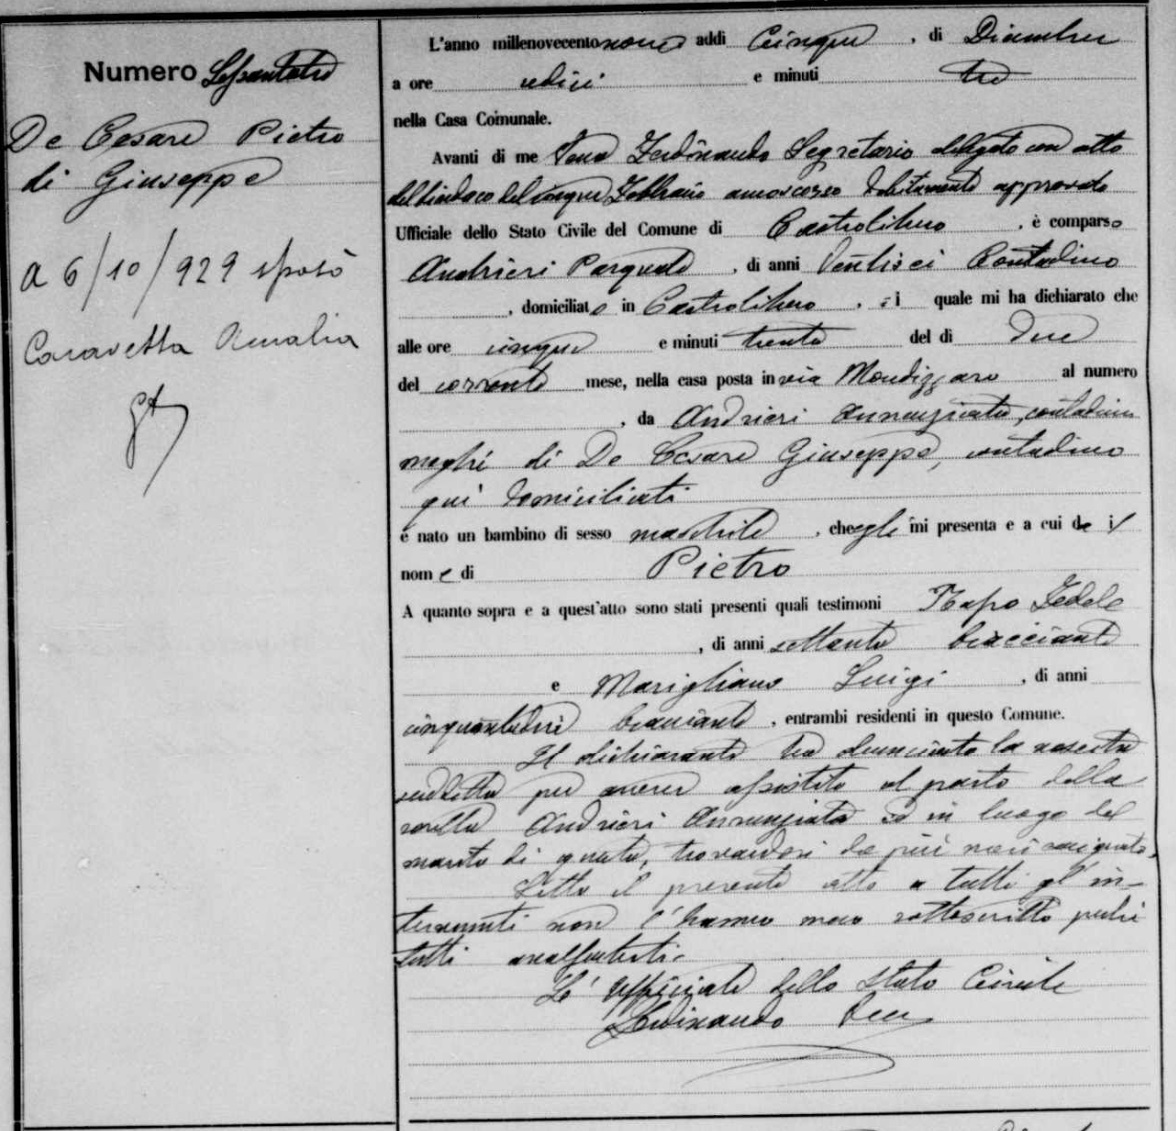 Numero Sessantatre
De Cesare Pietro
di Giuseppe
a 6/10/929 sposò
Caravetta Amalia
L'anno millenovecentonove addì Cinque, di Dicembre
a ore undici e minuti tre
nella Casa Comunale.
Avanti di me Ferdinando Segretario delegato con atto
del sindaco del cinque Febbraio anno scorso debitamente approvato
Ufficiale dello Stato Civile del Comune di Castrolibero, è comparso
Andrieri Pasquale, di anni Ventisei Contadino
, domiciliato in Castrolibero, il quale mi ha dichiarato che
alle ore cinque e minuti trenta del dì due
del corrente mese, nella casa posta in via Mondizzaro al numero
, da Andrieri Annunziata, contadina
moglie di De Cesare Giuseppe, contadino
qui domiciliati
è nato un bambino di sesso maschile, che egli mi presenta e a cui dà il
nome di Pietro
A quanto sopra e a quest'atto sono stati presenti quali testimoni Fedele
, di anni settanta bracciante
e Marigliano Luigi, di anni
bracciante, entrambi residenti in questo Comune.
Il dichiarante ha denunciato la nascita
suddetta per avere assistito al parto della
sorella Andrieri Annunziata ed in luogo del
marito di questa, trovandosi da più mesi emigrato.
Letto il presente atto a tutti gl'in-
tervenuti non l'hanno meco sottoscritto perché
tutti analfabeti.
L'Ufficiale dello Stato Civile
Ferdinando